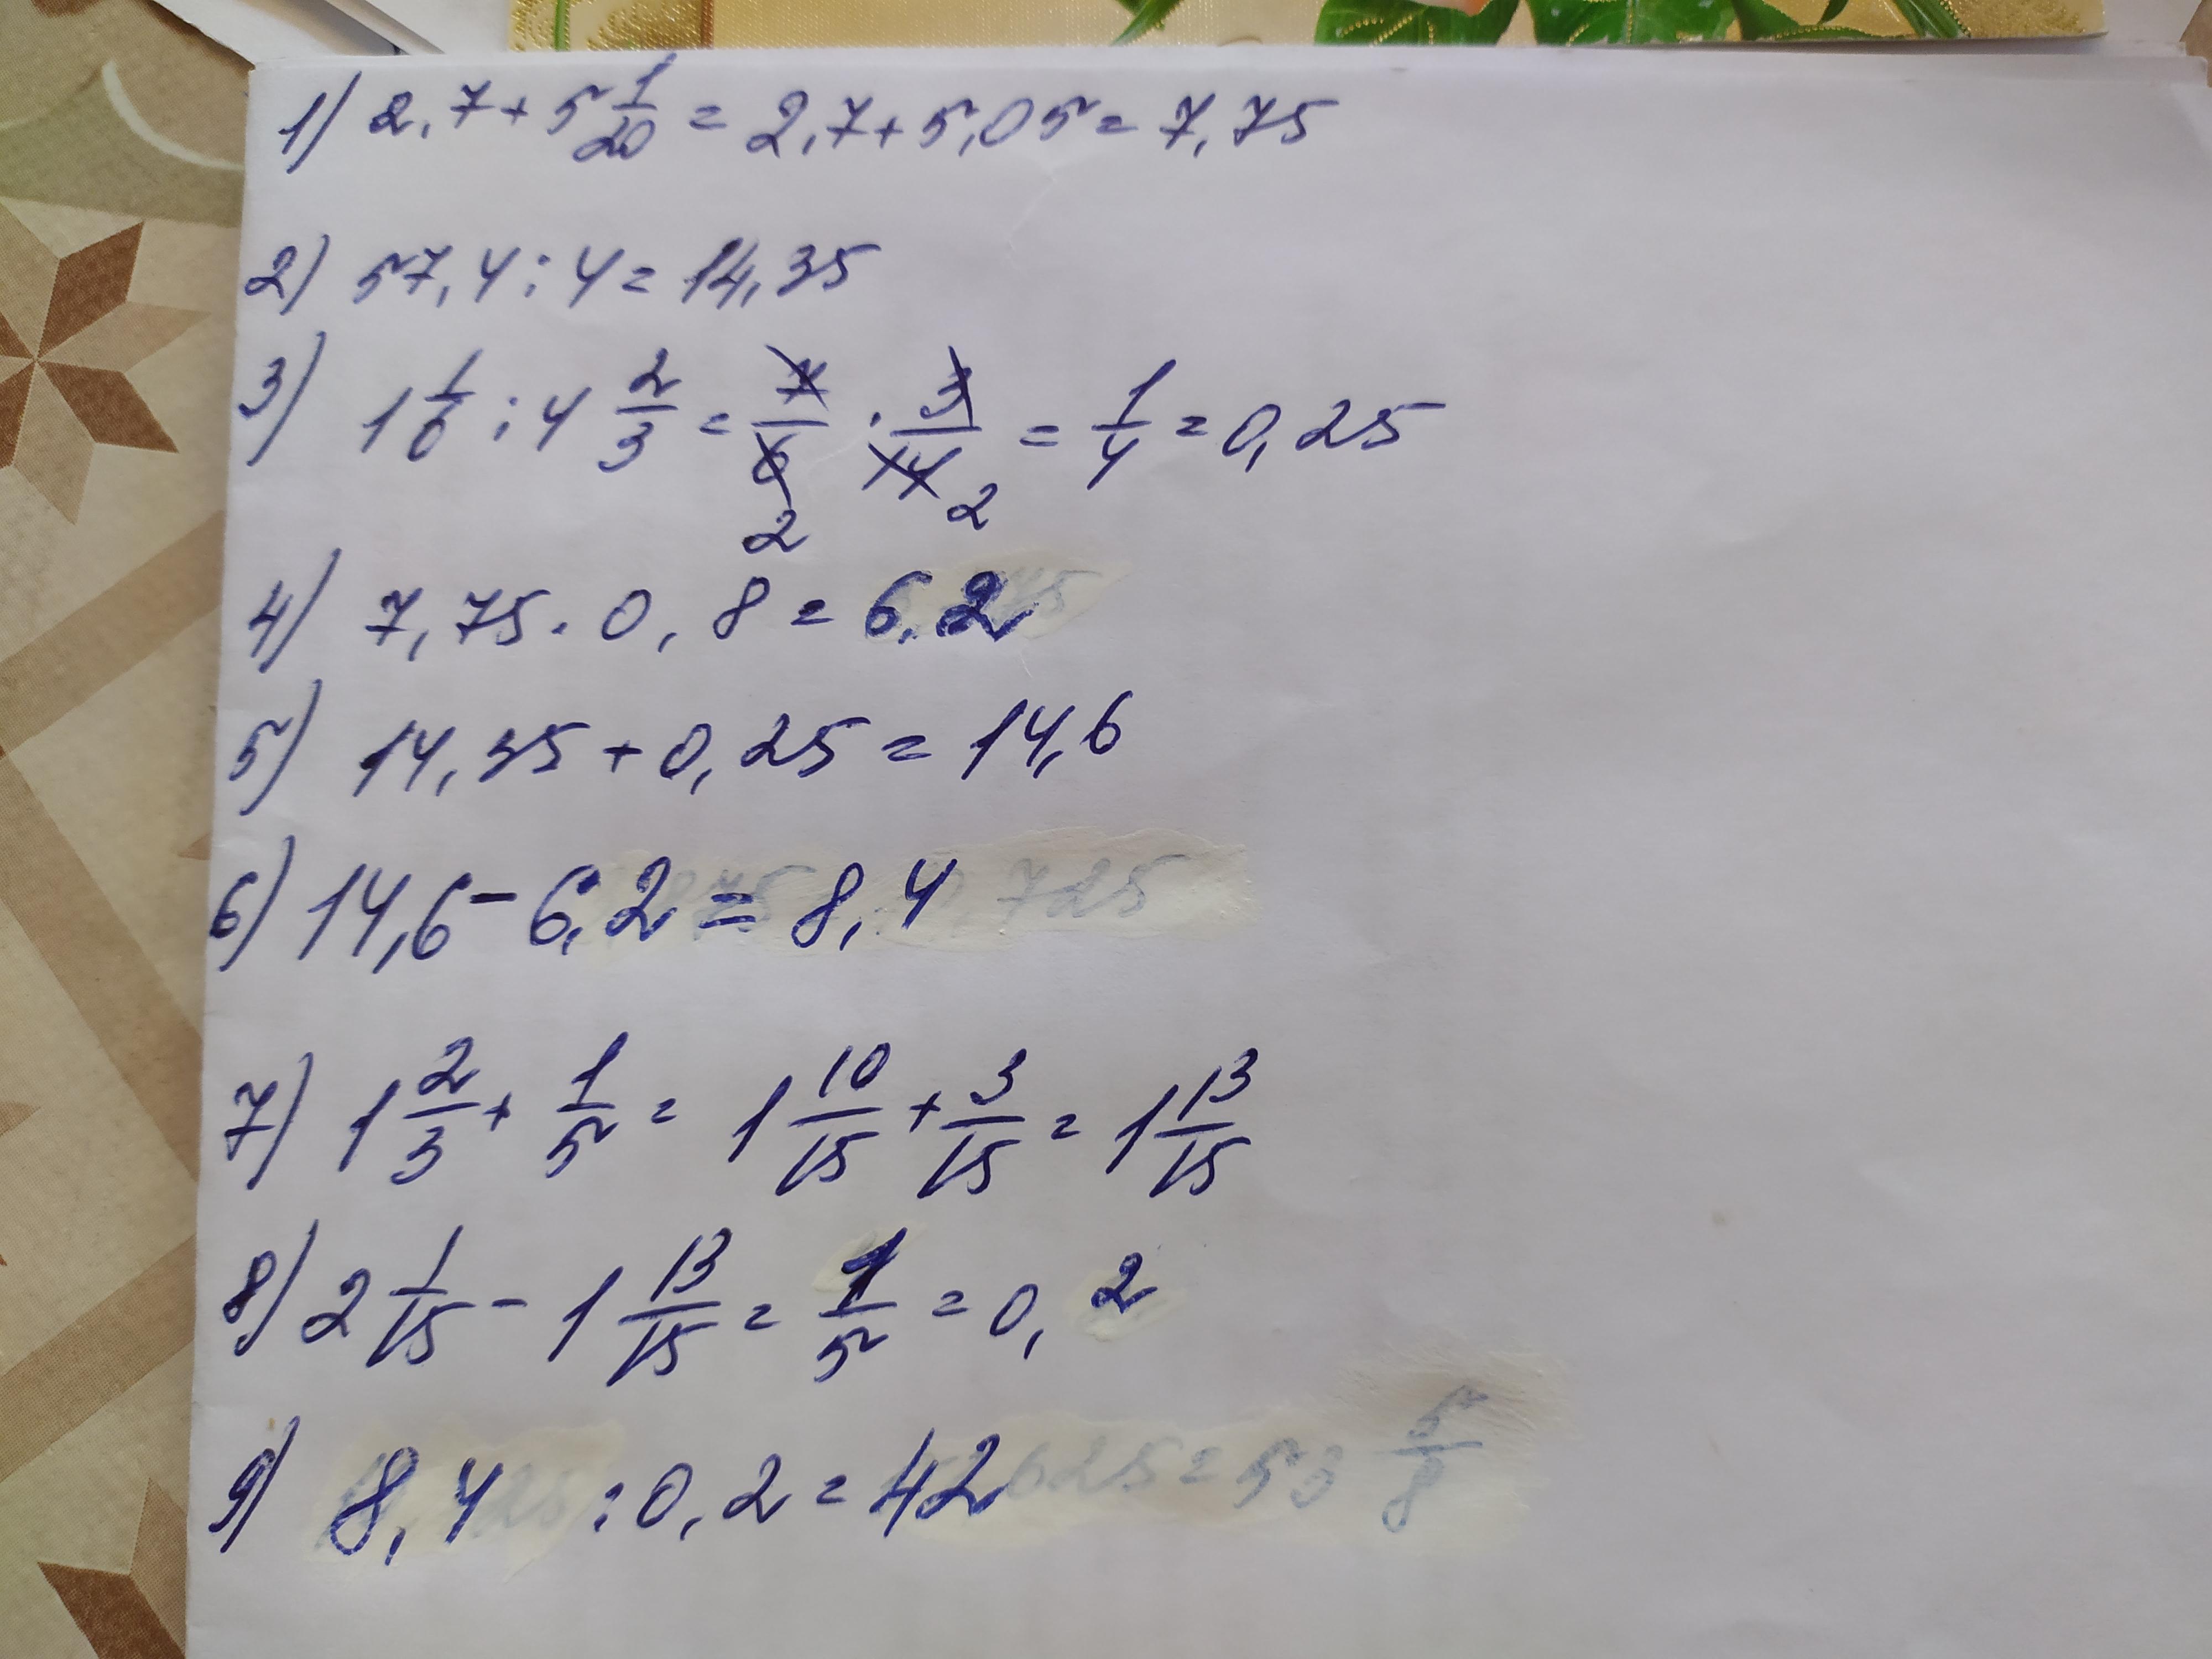 1) 2,7 + 5 1/20 = 2,7 + 5,05 = 7,75
2) 57,4 : 4 = 14,35
3) 1 1/6 : 4 2/3 = 7/6 · 3/14 = 1/4 = 0,25
2 2
4) 7,75 · 0,8 = 6,2
5) 14,35 + 0,25 = 14,6
6) 14,6 - 6,2 = 8,4
7) 1 2/3 + 1/5 = 1 10/15 + 3/15 = 1 13/15
8) 2 1/15 - 1 13/15 = 1/5 = 0,2
9) 8,4 : 0,2 = 42